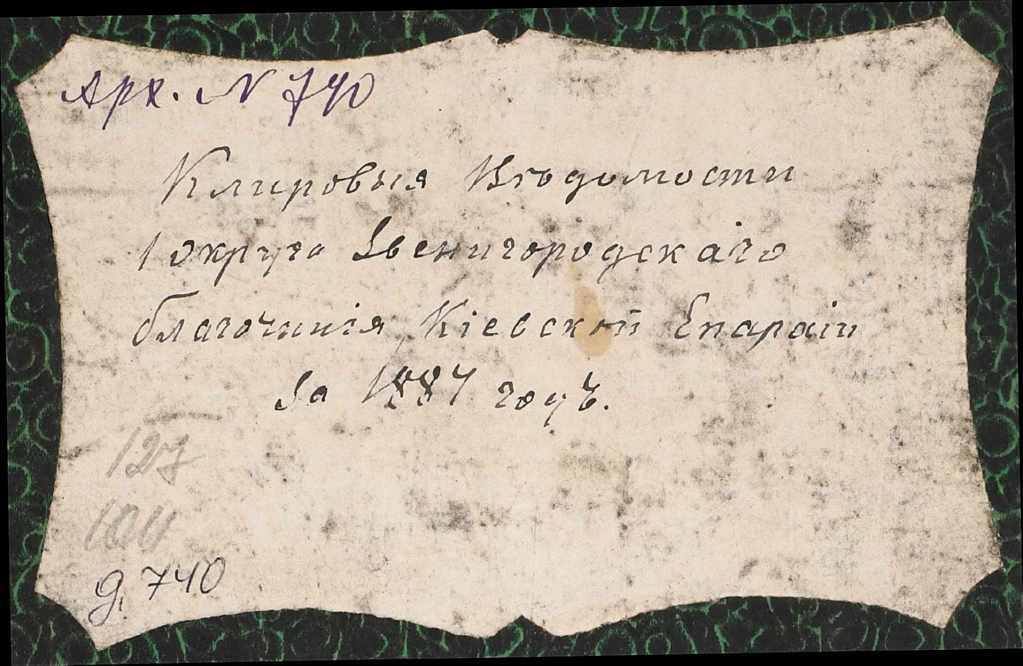 Арх. N 740
Клировыя Вѣдомости
1 округа Звенигородскаго
благочинія Кіевской Епархіи
За 1887 годъ.
127
1011
д. 740